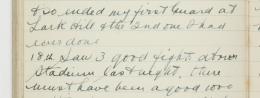 & so ended my first guard at
Lark Hill & the 2nd one I had
ever done
18th Saw 3 good fights above
Stadium last night, there
must have been a good 1000